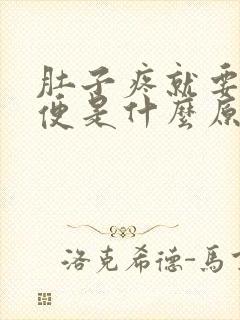 肚子疼就要
便是什麼原
洛克希德-馬